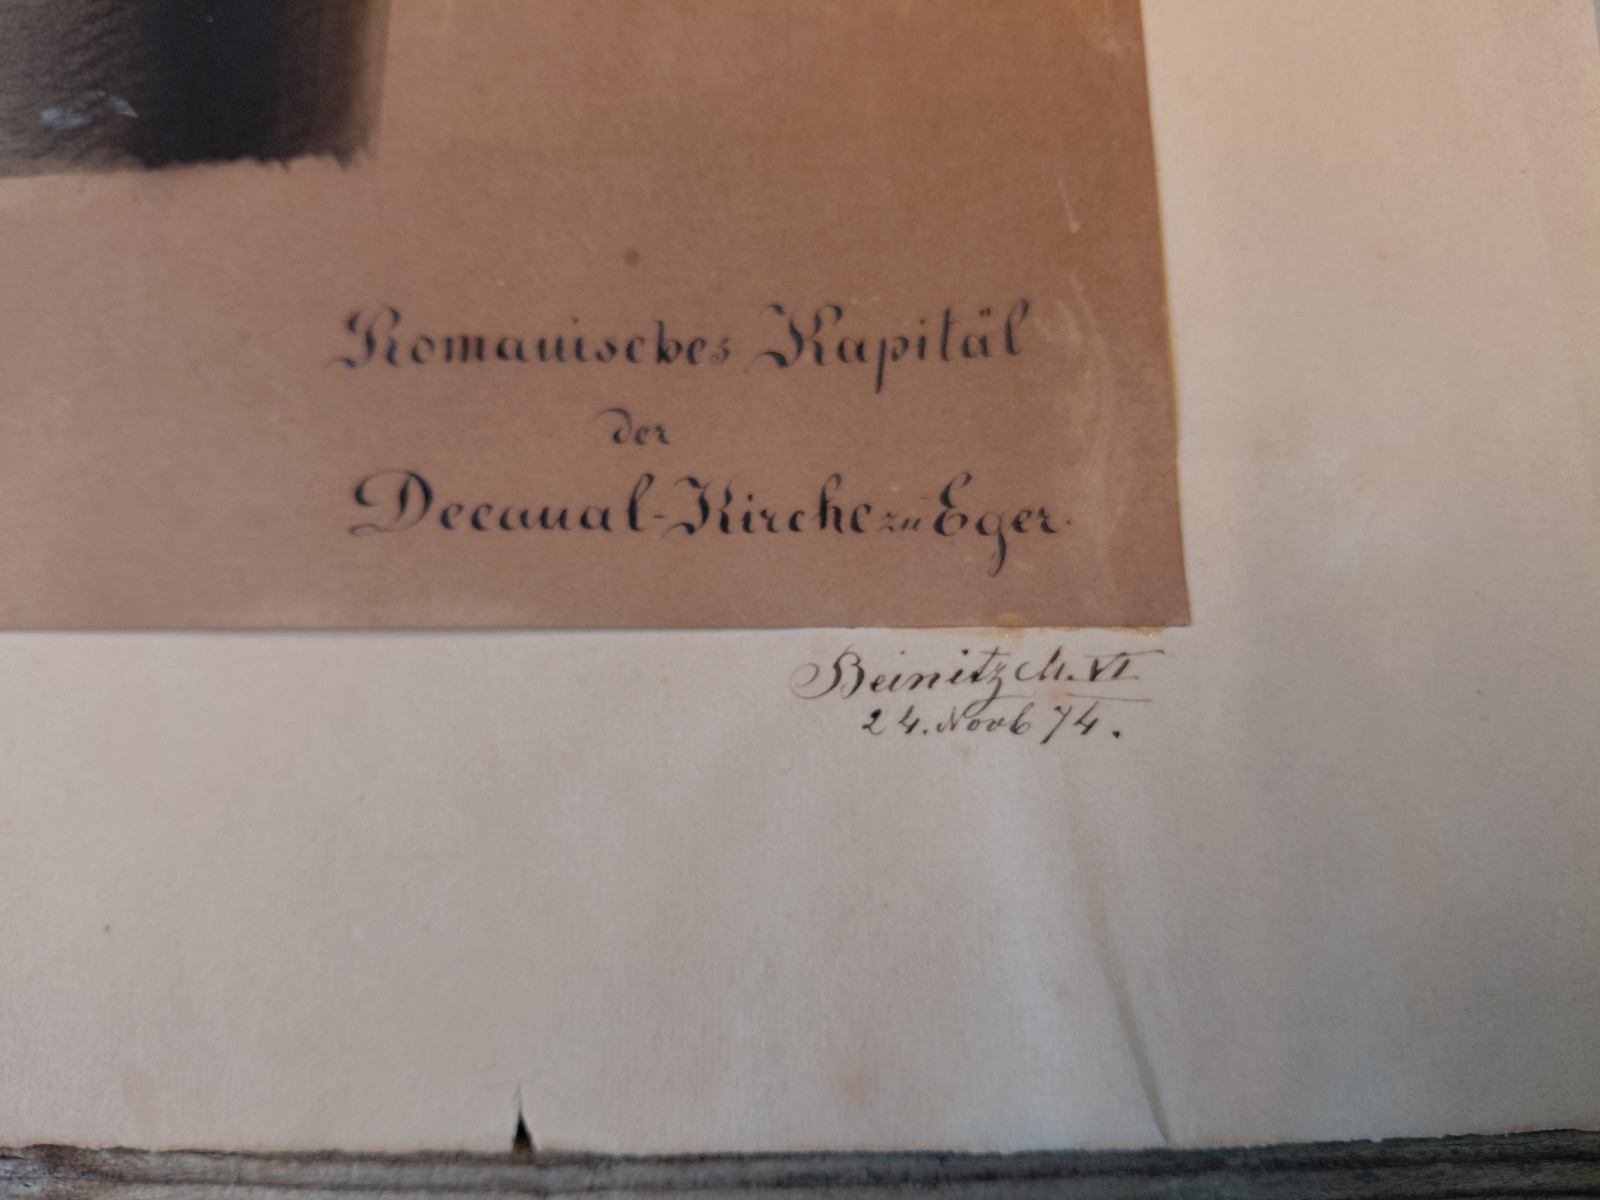 Romanisches Kapitäl
der
Decanal-Kirche zu Eger.
Beinitz M. VI
24. Novb 74.